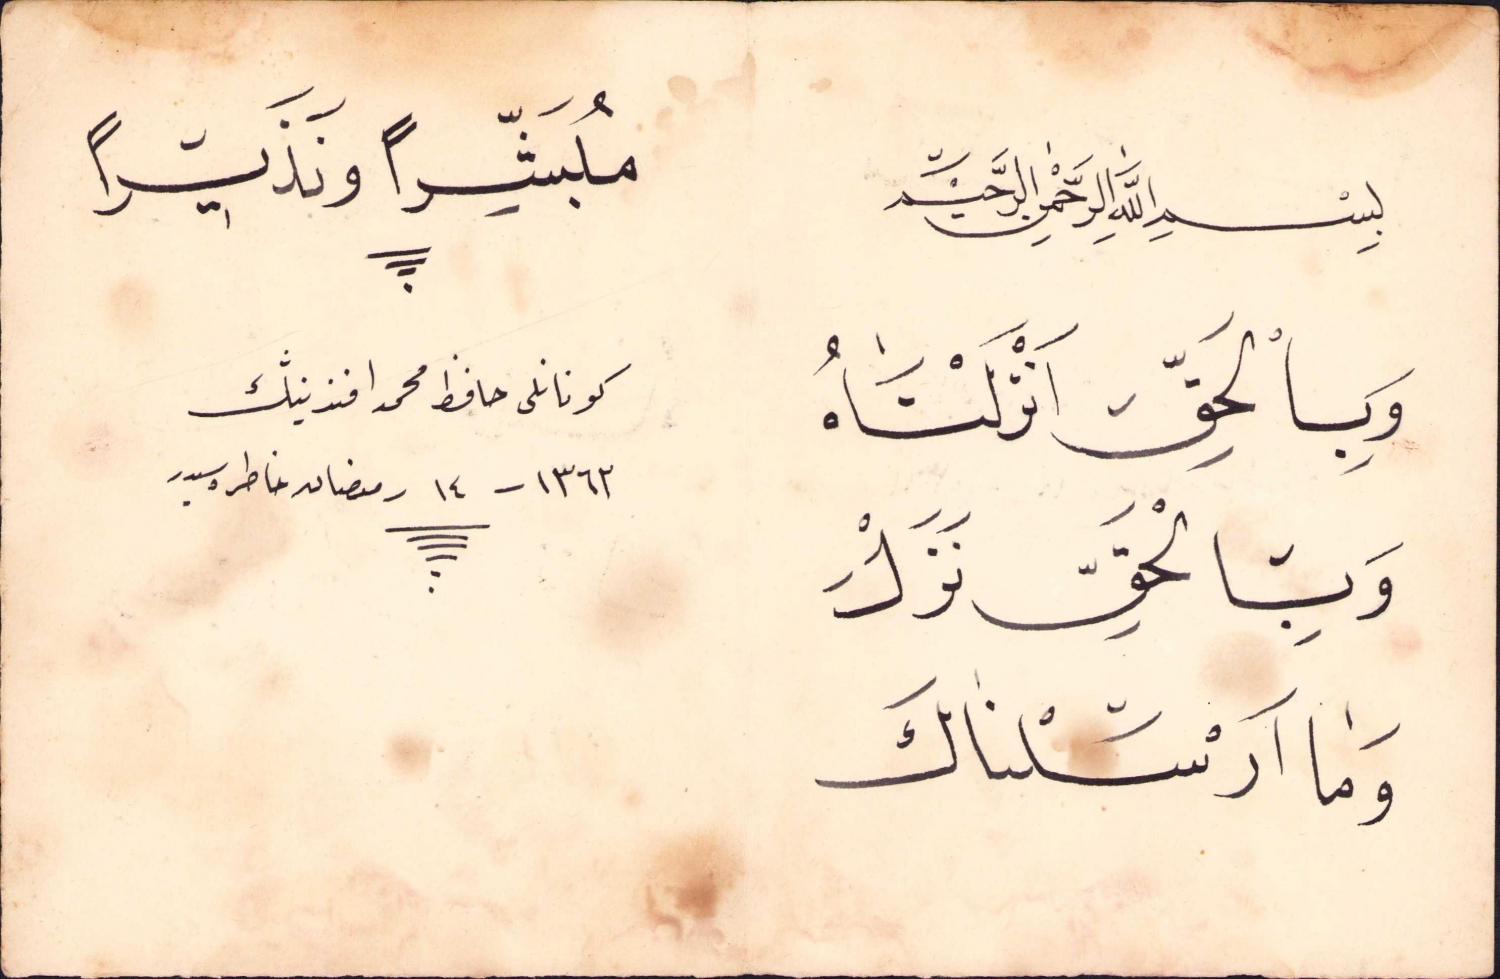 بِسْمِ اللّٰهِ الرَّحْمٰنِ الرَّحِيْمِ
وَبِالْحَقِّ اَنْزَلْنَاهُ
وَبِالْحَقِّ نَزَلْ
وَمٰا اَرْسَلْنٰاكَ
مُبَشِّراً وَنَذِيراً
كونانلى حافظ محمد افندينڭ
١٣٦٢ – ١٤ رمضان خاطره سيدر